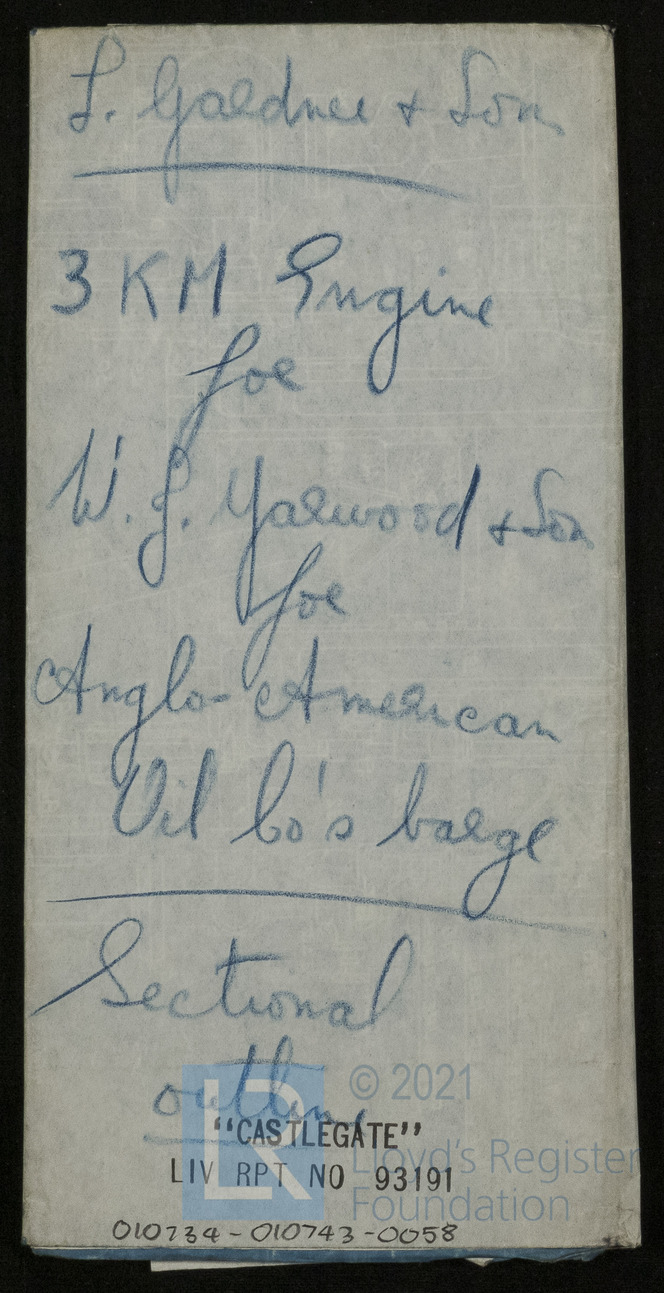 L. Gardner & Sons
3 KM Engine
for
W. J. Yarwood & Son
for
Anglo-American
Oil Co's barge
Sectional
outline
© 2021
"CASTLEGATE"
Lloyd's Register
LIV RPT NO 93191
Foundation
010734-010743-0058
LR